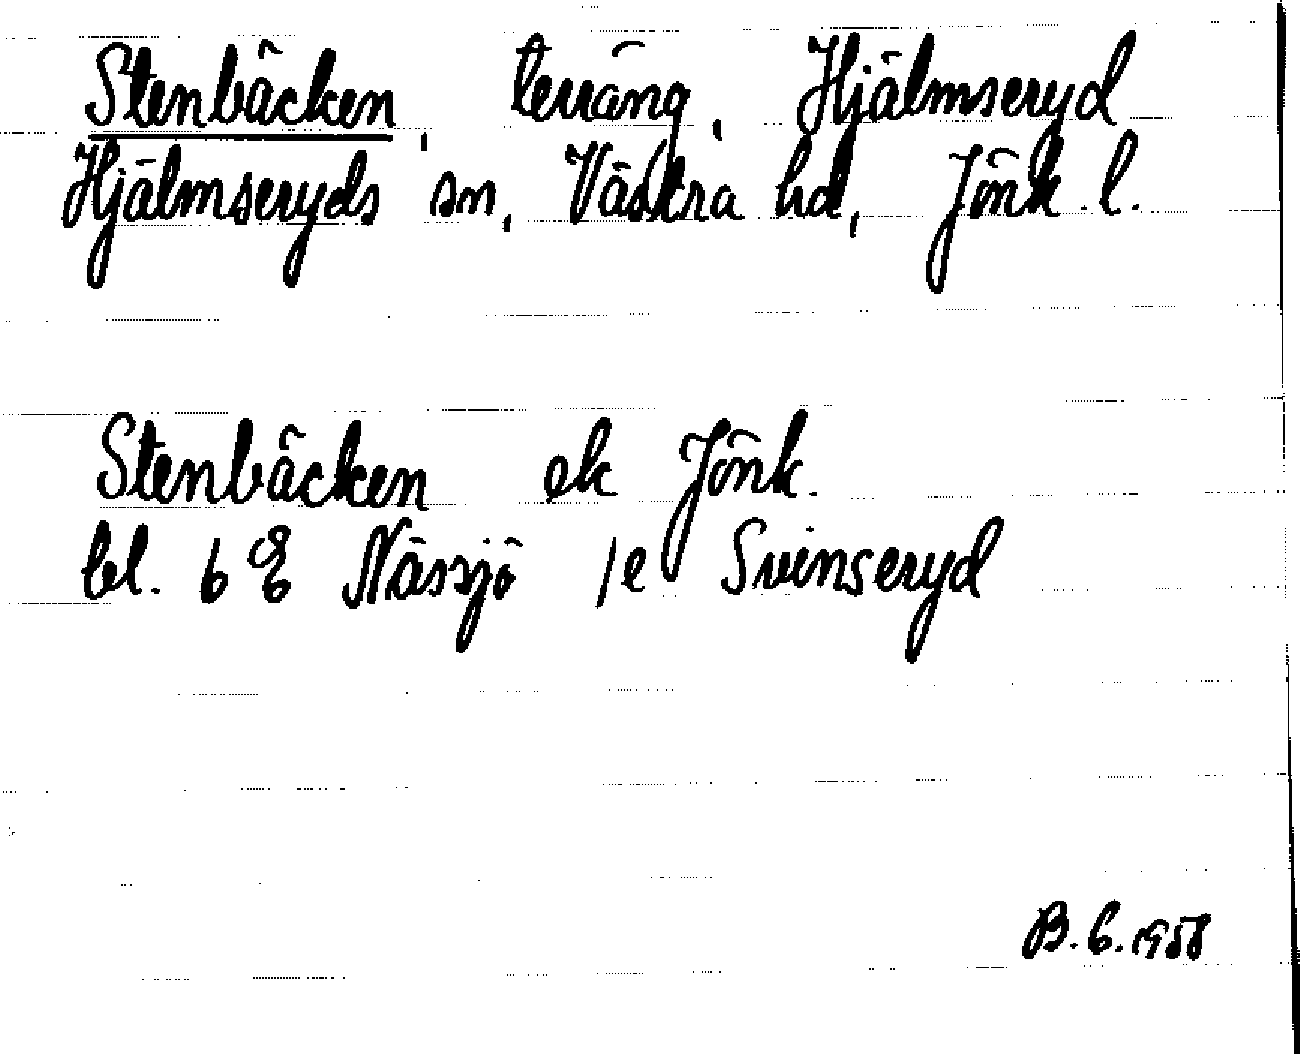 Stenbäcken, terräng, Hjälmseryd
Hjälmseryds sn, Västra hd, Jönk. l.
Stenbäcken ek Jönk.
bl. 6 E Nässjö /e Svenseryd
B. G. 1958